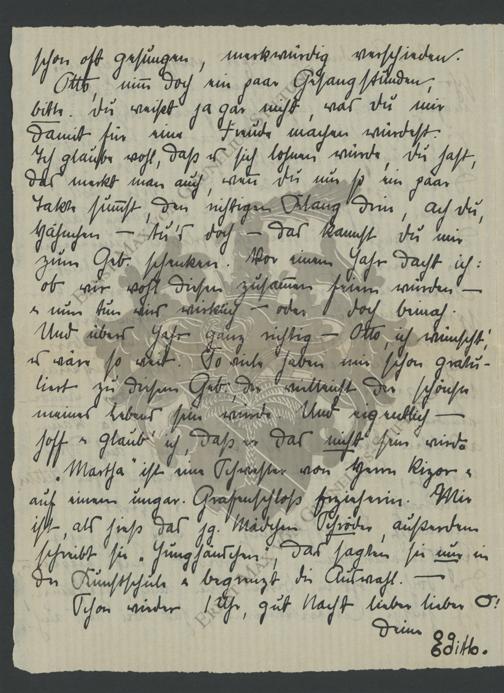 schon oft gesungen, merkwürdig verschieden.
Otto, nim̄ doch ein paar Gesangstunden,
bitte. Du weißt ja gar nicht, was Du mir
damit für eine Freude machen würdest.
Ich glaube wohl, daß es sich lohnen würde, Du hast,
das merkt man auch, wen̄ Du nur so ein paar
Takte sum̄st, den richtigen Klang drin, ach Du,
Hähnchen — tu's doch — das kannst Du mir
zum Geb. schenken. Vor einem Jahr dacht ich:
ob wir wohl diesen zusam̄en feiern würden —
u nun tun wirs wirklich — oder doch beinah.
Und übers Jahr ganz richtig — Otto, ich wünscht,
es wäre so weit. So viele haben mir schon gratu-
liert zu diesem Geb., der vielleicht der schönste
meines Lebens sein würde. Und eigentlich —
hoff u glaub ich, daß er das nicht sein wird.
"Martha" ist eine Schwester von Herrn
auf einem ungar. Grafenschloß Erzieherin. Mir
ist, als hieß das jg. Mädchen Schröder, außerdem
schreibt sie "", das sagten sie nur in
der Kunstschule u begrenzt die Auswahl. —
Schon wieder 1 Uhr, gut Nacht lieber lieber O!
Deine
Editto.